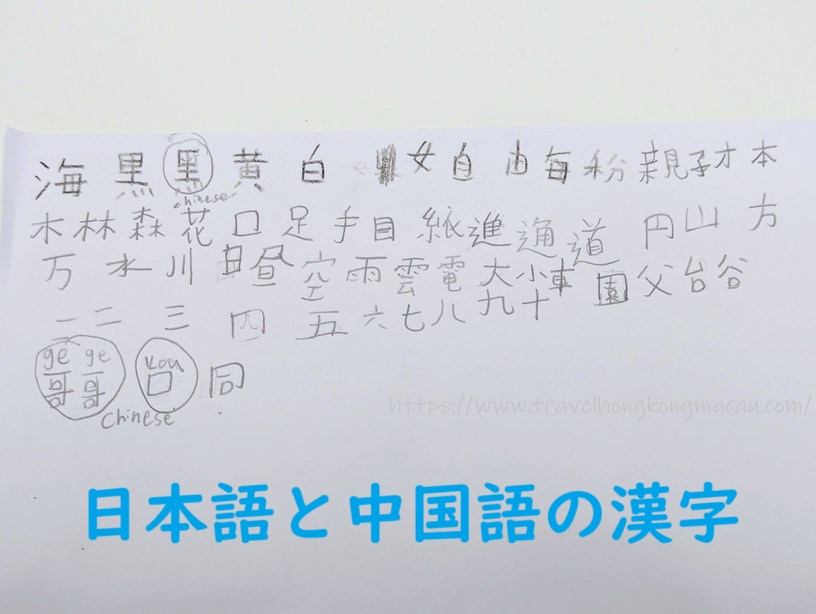 海 黒 黑 黄 白 女 自 由 毎 粉 親 子 才 本
chinese
木 林 森 花 口 足 手 目 紙 進 通 道 円 山 方
万 水 川 日 昼 空 雨 雲 電 大 小 車 園 父 台 谷
一 二 三 四 五 六 七 八 九 十
ge ge kou
哥 哥 口 同
Chinese
https://www.travelhongkongmacau.com/
日本語と中国語の漢字